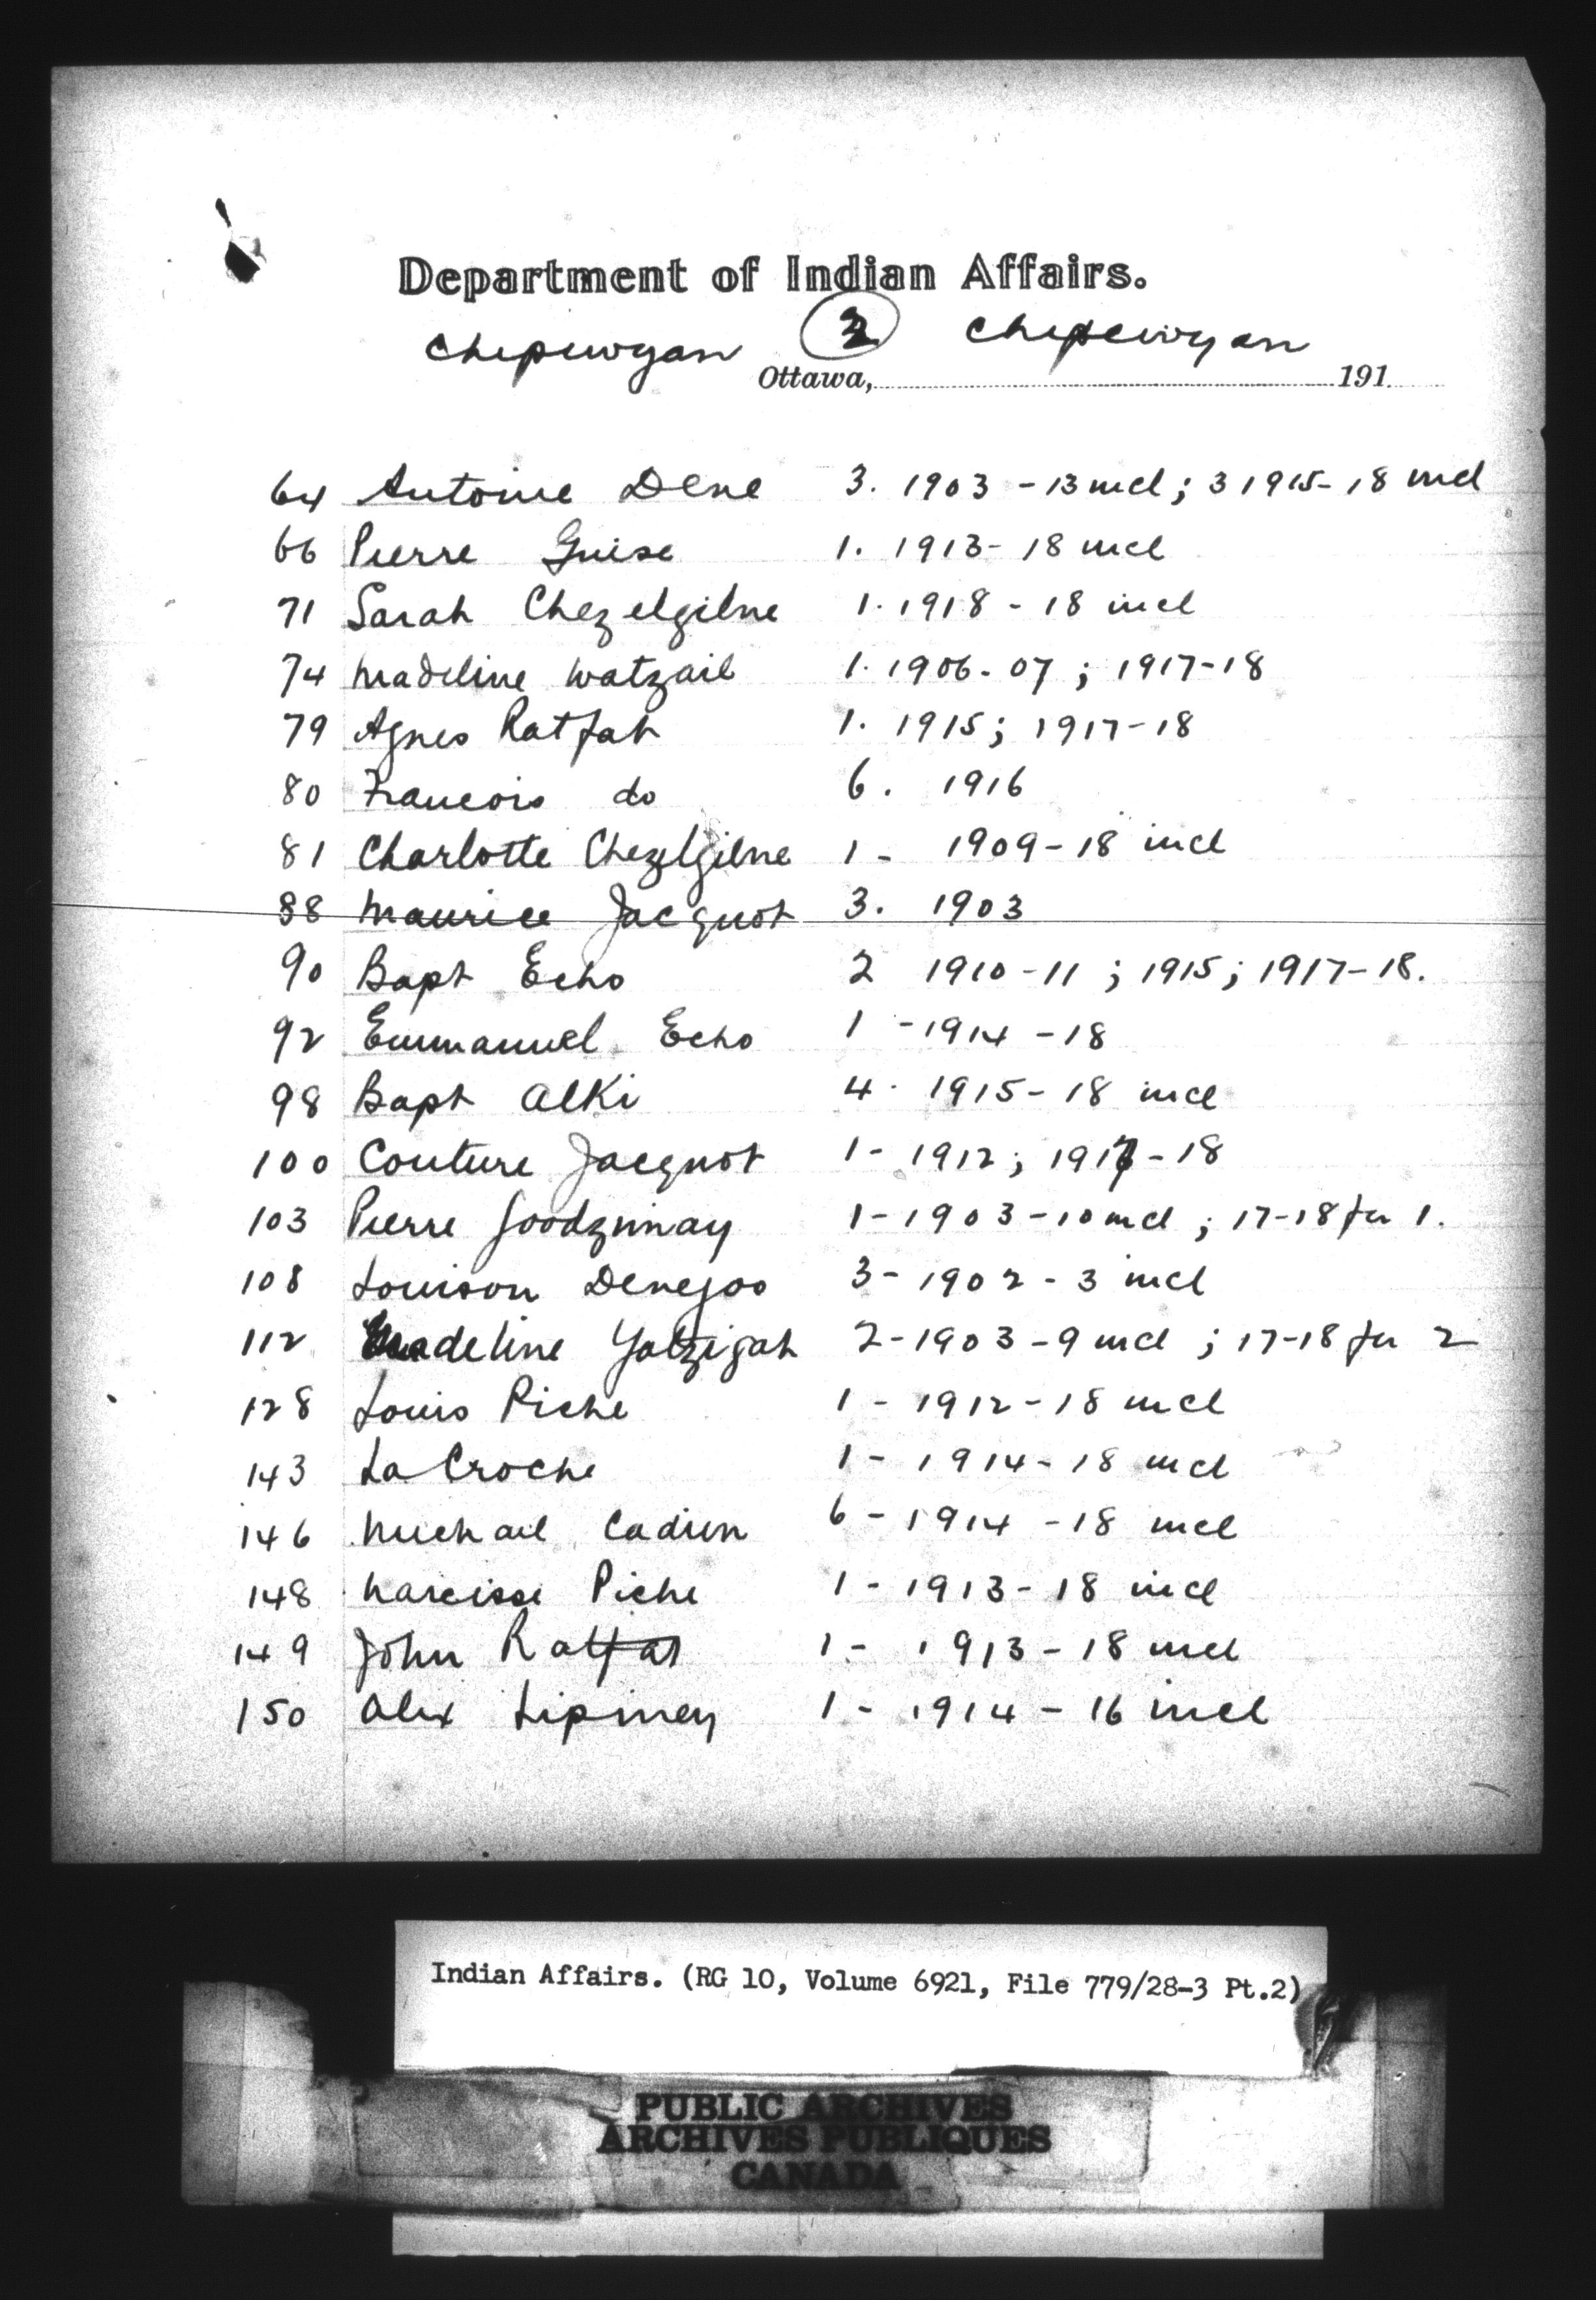 Department of Indian Affairs.
Chipewyan 2 Chipewyan
Ottawa, 191
64 Antoine Dene 3. 1903 - 13 incl; 3 1915- 18 incl
66 Pierre Guise 1. 1913- 18 incl
71 Sarah Chezelgilne 1. 1918 - 18 incl
74 Madeline Watzail 1. 1906- 07 ; 1917-18
79 Agnes Ratfat 1. 1915; 1917-18
80 Francois do 6. 1916
81 Charlotte Chezelgilne 1 - 1909-18 incl
88 Maurice Jacquot 3. 1903
90 Bapt Echo 2 1910-11 ; 1915; 1917-18.
92 Emmanuel Echo 1 -1914 -18
98 Bapt Alki 4. 1915- 18 incl
100 Couture Jacquot 1- 1912; 1917-18
103 Pierre 1-1903-10 incl ; 17-18 for 1.
108 Louison Denegoo 3- 1902-3 incl
112 Madeline Yatzizah 2-1903-9 incl ; 17-18 for 2
128 Louis Piche 1 - 1912-18 incl
143 La Croche 1 - 1914-18 incl
146 Michael Cadien 6 - 1914 -18 incl
148 Narcisse Piche 1 - 1913-18 incl
149 John Ratfat 1- 1913-18 incl
150 Alex 1 - 1914 - 16 incl
Indian Affairs. (RG 10, Volume 6921, File 779/28-3 Pt.2)
PUBLIC ARCHIVES
ARCHIVES PUBLIQUES
CANADA